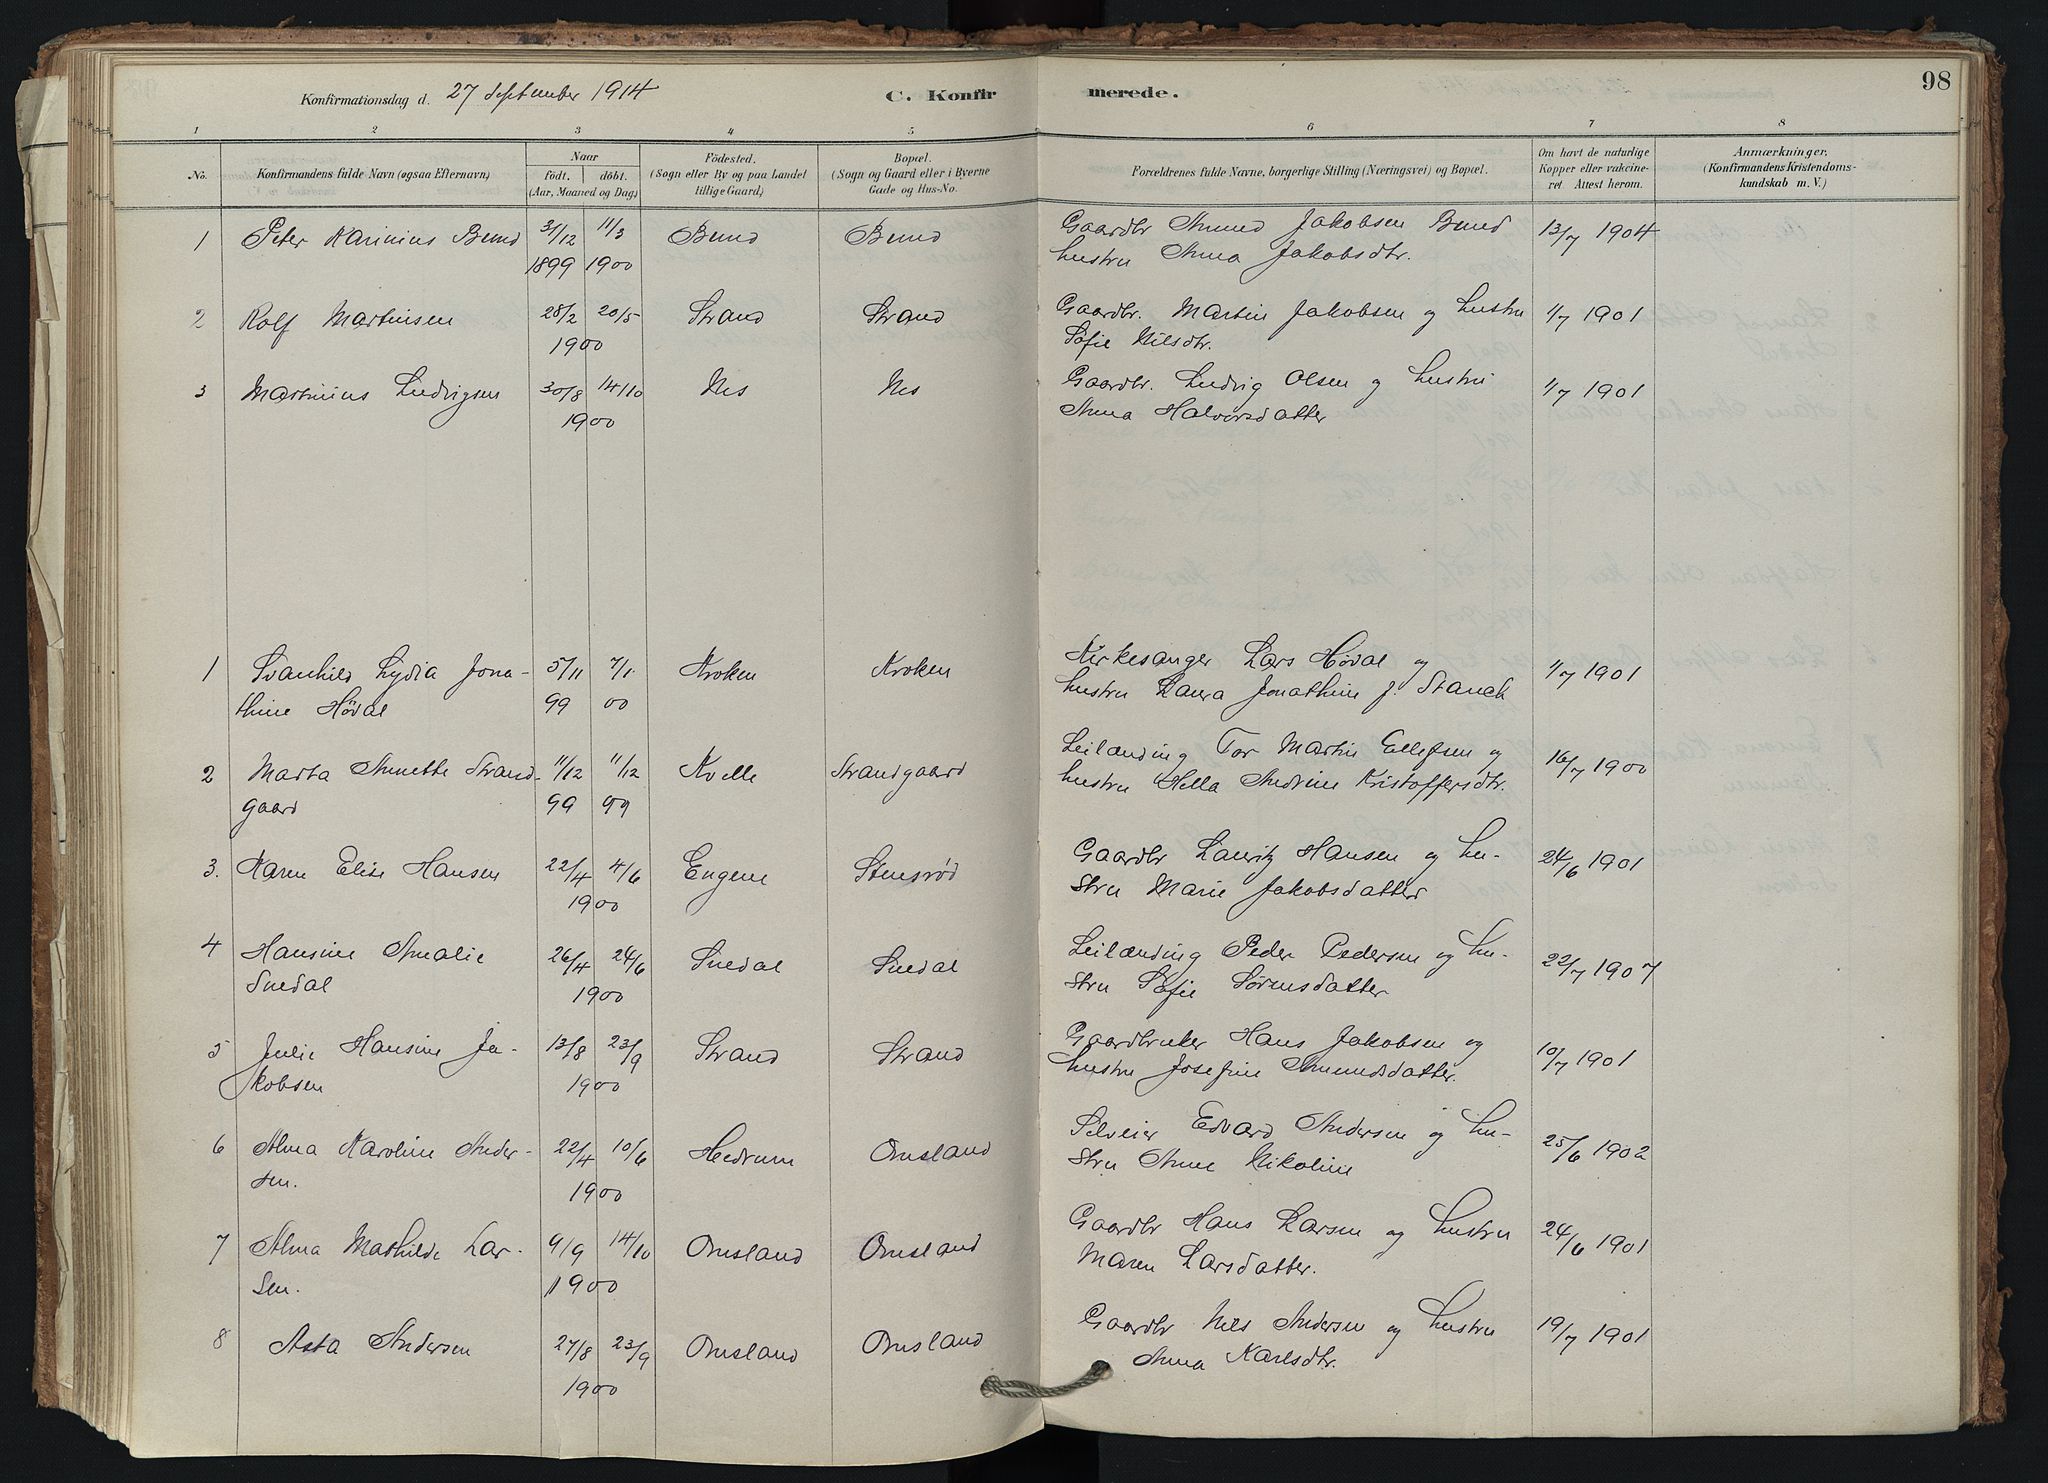 98
Konfirmationsdag d. 27 september 1914
C. Konfirmerede.
1 2 3 4 5 6 7 8
No. Konfirmandens fulde Navn (ogsaa Efternavn) Naar födt. döbt. (Aar, Maaned og Dag) Födested. (Sogn eller By og paa Landet tillige Gaard) Bopæl. (Sogn og Gaard eller i Byerne Gade og Hus-No. Forældrenes fulde Navne, borgerlige Stilling (Næringsvei) og Bopæl. Om havt de naturlige Kopper eller vakcineret. Attest herom. Anmærkninger. (Konfirmandens Kristendomskundskab m. V.)
1 Peter Karinius Bund 31/12 11/3 Bund Bund Gaardbr Amund Jakobsen Bund 13/7 1904
1899 1900 hustru Anna Jakobsdtr.
2 Rolf Martinsen 28/2 20/5 Strand Strand Gaardbr. Martin Jakobsen og hustru 1/7 1901
1900 Sofie Nilsdtr.
3 Martinius Ludvigsen 30/8 14/10 Nes Nes Gaardbr. Ludvig Olsen og hustru 1/7 1901
1900 Anna Halvorsdatter
1 Svanhild Lydia Jona- 5/11 7/1 Kroken Kroken Kirkesanger Lars Høval og 1/7 1901
thine Høval 99 00 hustru Laura Jonathine f. Stanck
2 Marta Annette Strand- 11/12 11/12 Kvelle Strandgaard Leilænding Tor Martin Ellefsen og 16/7 1900
gaard 99 99 hustru Hella Andrine Kristoffersdtr.
3. Karen Elise Hansen 22/4 4/6 Engene Stensrød Gaardbr Lauritz Hansen og hu- 24/6 1901
1900 stru Marie Jakobsdatter
4 Hansine Amalie 26/4 24/6 Snedal Snedal Leilænding Peder Pedersen og hu- 22/7 1907
Snedal 1900 stru Sofie Sørensdatter
5 Julie Hansine Ja- 13/8 23/9 Strand Strand Gaardbruker Hans Jakobsen og 10/7 1901
kobsen 1900 hustru Josefine Amundsdatter.
6 Alma Karoline Ander- 22/4 10/6 Hedrum Omsland Selveier Edvard Andersen og hu- 25/6 1902
sen. 1900 stru Anne Nikoline
7 Alma Mathilde Lar- 9/9 14/10 Omsland Omsland Gaardbr Hans Larsen og hustru 24/6 1901
sen. 1900 Maren Larsdatter.
8 Asta Andersen 27/8 23/9 Omsland Omsland Gaardbr Nils Andersen og hustru 19/7 1901
1900 Anna Karlsdtr.